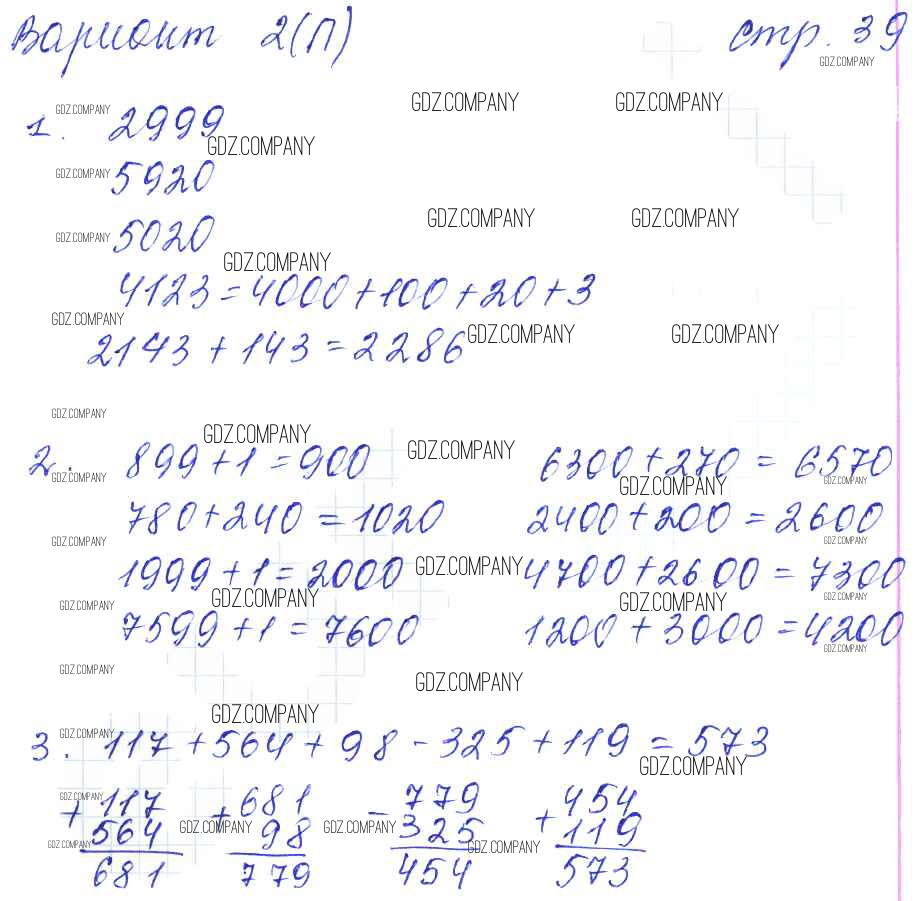 Вариант 2(П) стр. 39
GDZ.COMPANY
GDZ.COMPANY GDZ.COMPANY GDZ.COMPANY
1. 2999
GDZ.COMPANY
GDZ.COMPANY 5920
GDZ.COMPANY GDZ.COMPANY
GDZ.COMPANY 5020
GDZ.COMPANY
4123 = 4000 + 100 + 20 + 3
GDZ.COMPANY
GDZ.COMPANY GDZ.COMPANY
2143 + 143 = 2286
GDZ.COMPANY
GDZ.COMPANY GDZ.COMPANY
2. 899 + 1 = 900 6300 + 270 = 6570
GDZ.COMPANY GDZ.COMPANY GDZ.COMPANY
780 + 240 = 1020 2400 + 200 = 2600
GDZ.COMPANY GDZ.COMPANY
1999 + 1 = 2000 GDZ.COMPANY 4700 + 2600 = 7300
GDZ.COMPANY GDZ.COMPANY GDZ.COMPANY GDZ.COMPANY
7599 + 1 = 7600 1200 + 3000 = 4200
GDZ.COMPANY
GDZ.COMPANY GDZ.COMPANY
GDZ.COMPANY
GDZ.COMPANY
3. 117 + 564 + 98 - 325 + 119 = 573
GDZ.COMPANY
GDZ.COMPANY
+ 117 + 681 - 779 + 454
564 98 325 119
GDZ.COMPANY GDZ.COMPANY GDZ.COMPANY GDZ.COMPANY
681 779 454 573